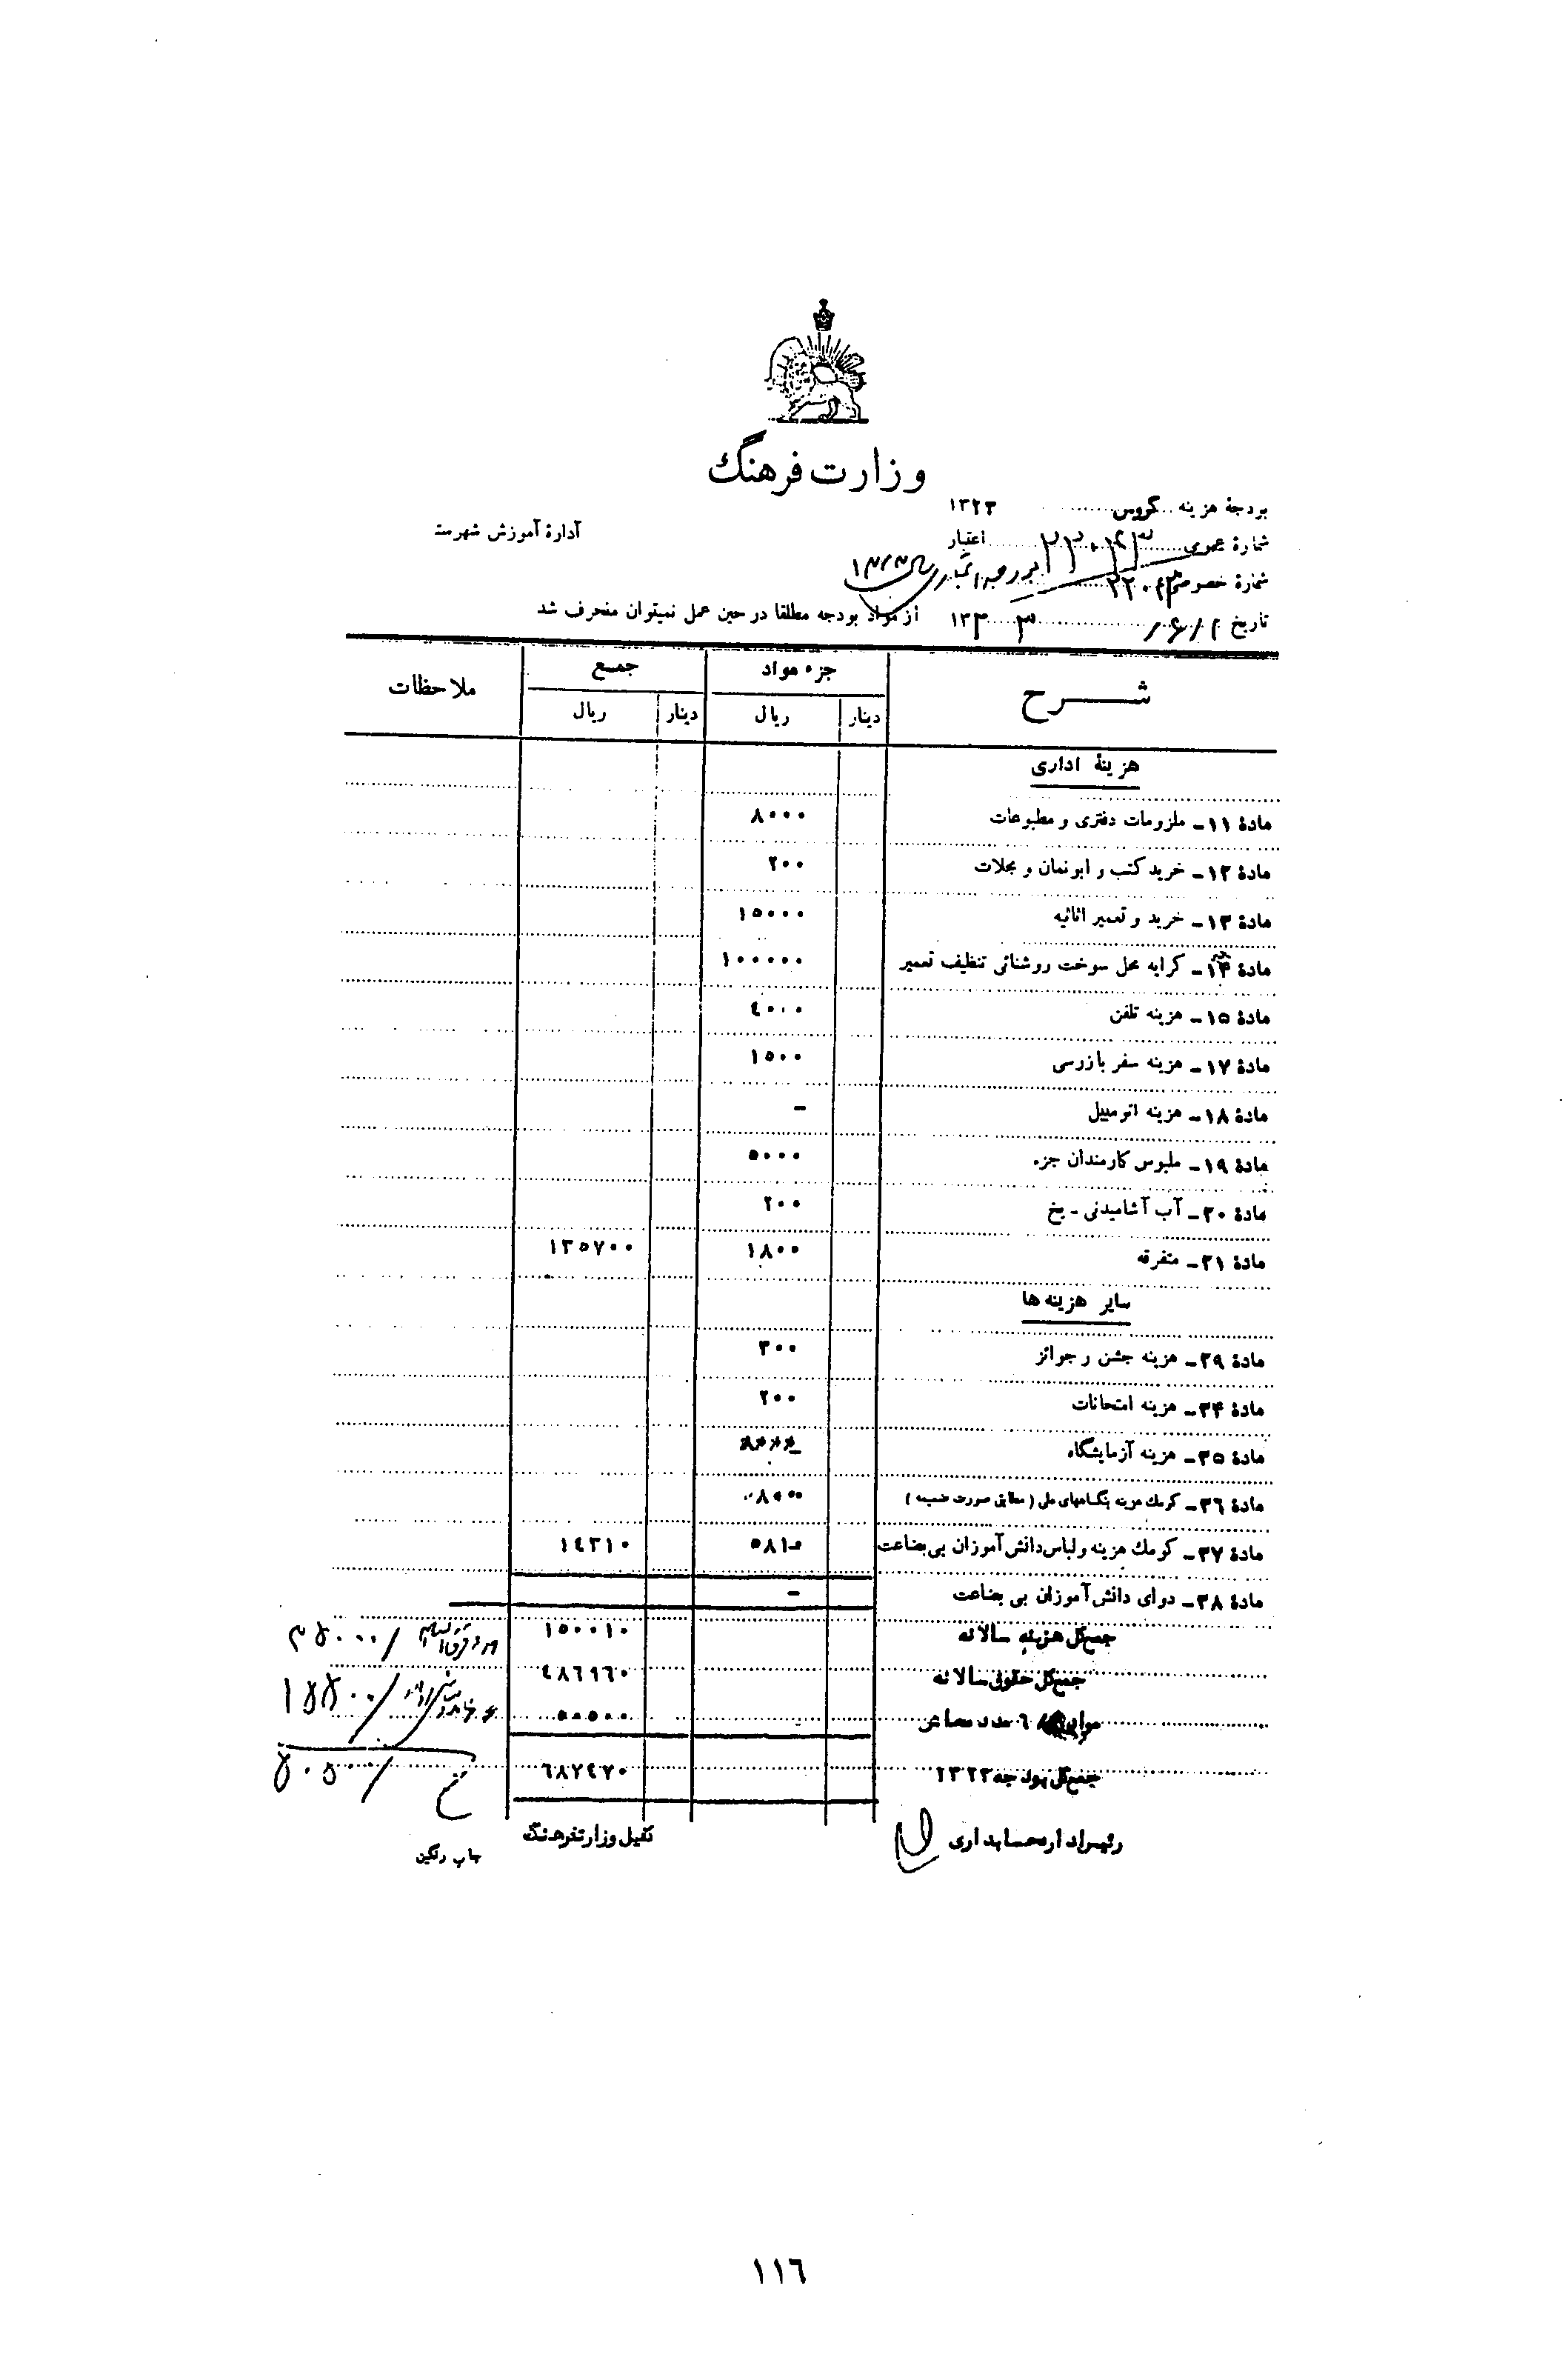 وزارت فرهنگ
بودجهٔ هزینه گروس ۱۳۲۳
ادارهٔ آموزش شهرستـ
شمارهٔ عمومی اعتبار
شمارهٔ خصوصی
تاریخ
از مواد بودجه مطلقا در حین عمل نمیتوان منحرف شد
شرح جزء مواد جمع ملاحظات
دینار ریال دینار ریال
هزینهٔ اداری
مادهٔ ۱۱ـ ملزومات دفتری و مطبوعات ۸۰۰۰
مادهٔ ۱۲ـ خرید کتب و ابونمان و مجلات ۲۰۰
مادهٔ ۱۳ـ خرید و تعمیر اثاثیه ۱۵۰۰۰
مادهٔ ۱۴ـ کرایه محل سوخت روشنائی تنظیف تعمیر ۱۰۰۰۰۰
مادهٔ ۱۵ـ هزینه تلفن ٤۰۰۰
مادهٔ ۱۷ـ هزینه سفر بازرسی ۱۵۰۰
مادهٔ ۱۸ـ هزینه اتومبیل -
مادهٔ ۱۹ـ ملبوس کارمندان جزء ۵۰۰۰
مادهٔ ۲۰ـ آب آشامیدنی - یخ ۲۰۰
مادهٔ ۲۱ـ متفرقه ۱۸۰۰ ۱۳۵۷۰۰
سایر هزینه ها
مادهٔ ۲۹ـ هزینه جشن و جوائز ۳۰۰
مادهٔ ۳۴ـ هزینه امتحانات ۲۰۰
مادهٔ ۳۵ـ هزینه آزمایشگاه
مادهٔ ۳٦ـ کومك هزینه بنگاههای ملی ( مطابق صورت ضمیمه ) ۸۰۰۰
مادهٔ ۳۷ـ کومك هزینه و لباس دانش آموزان بی بضاعت ۵۸۱۰ ۱٤۳۱۰
مادهٔ ۳۸ـ دوای دانش آموزان بی بضاعت -
جمع کل هزینه سالانه ۱۵۰۰۱۰
جمع کل حقوق سالانه ٤۸٦۹٦۰
مدد معاش ۵۰۵۰۰
جمع کل بودجه ۱۳۲۳ ٦۸۷٤۷۰
رئیس اداره حسابداری
کفیل وزارت فرهنگ
چاپ رنگین
۱۱٦